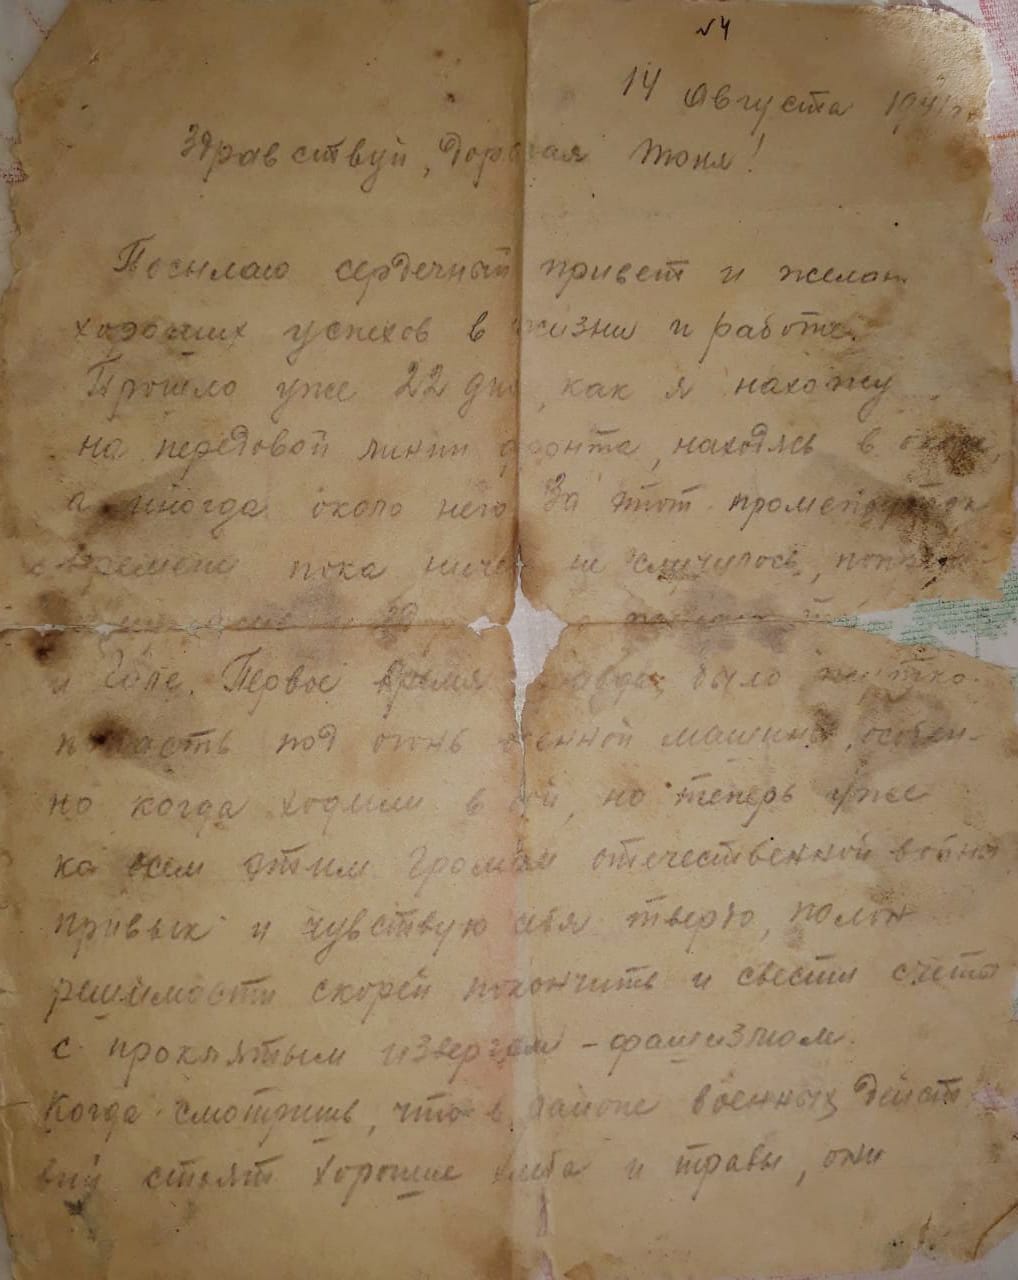 №4
14 Августа 1941г.
Здравствуй, Дорогая Тоня!
Посылаю сердечный привет и желаю
хороших успехов в жизни и работе.
Прошло уже 22 дня, как я нахожу
на передовой линии фронта, находясь в окопе,
а иногда около него За этот промежуток
времени пока ниче не случилось,
и Боле. Первое время правда, было жутко
попасть под огонь военной машины, особен-
но когда ходили в бой, но теперь уже
ко всем этим громам отечественной войны
привык и чувствую себя твердо, полон
решимости скорей покончить и свести счеты
с проклятым извергом - фашизмом.
Когда смотришь, что в районе военных дейст
вий стоят хорошие хлеба и травы, они